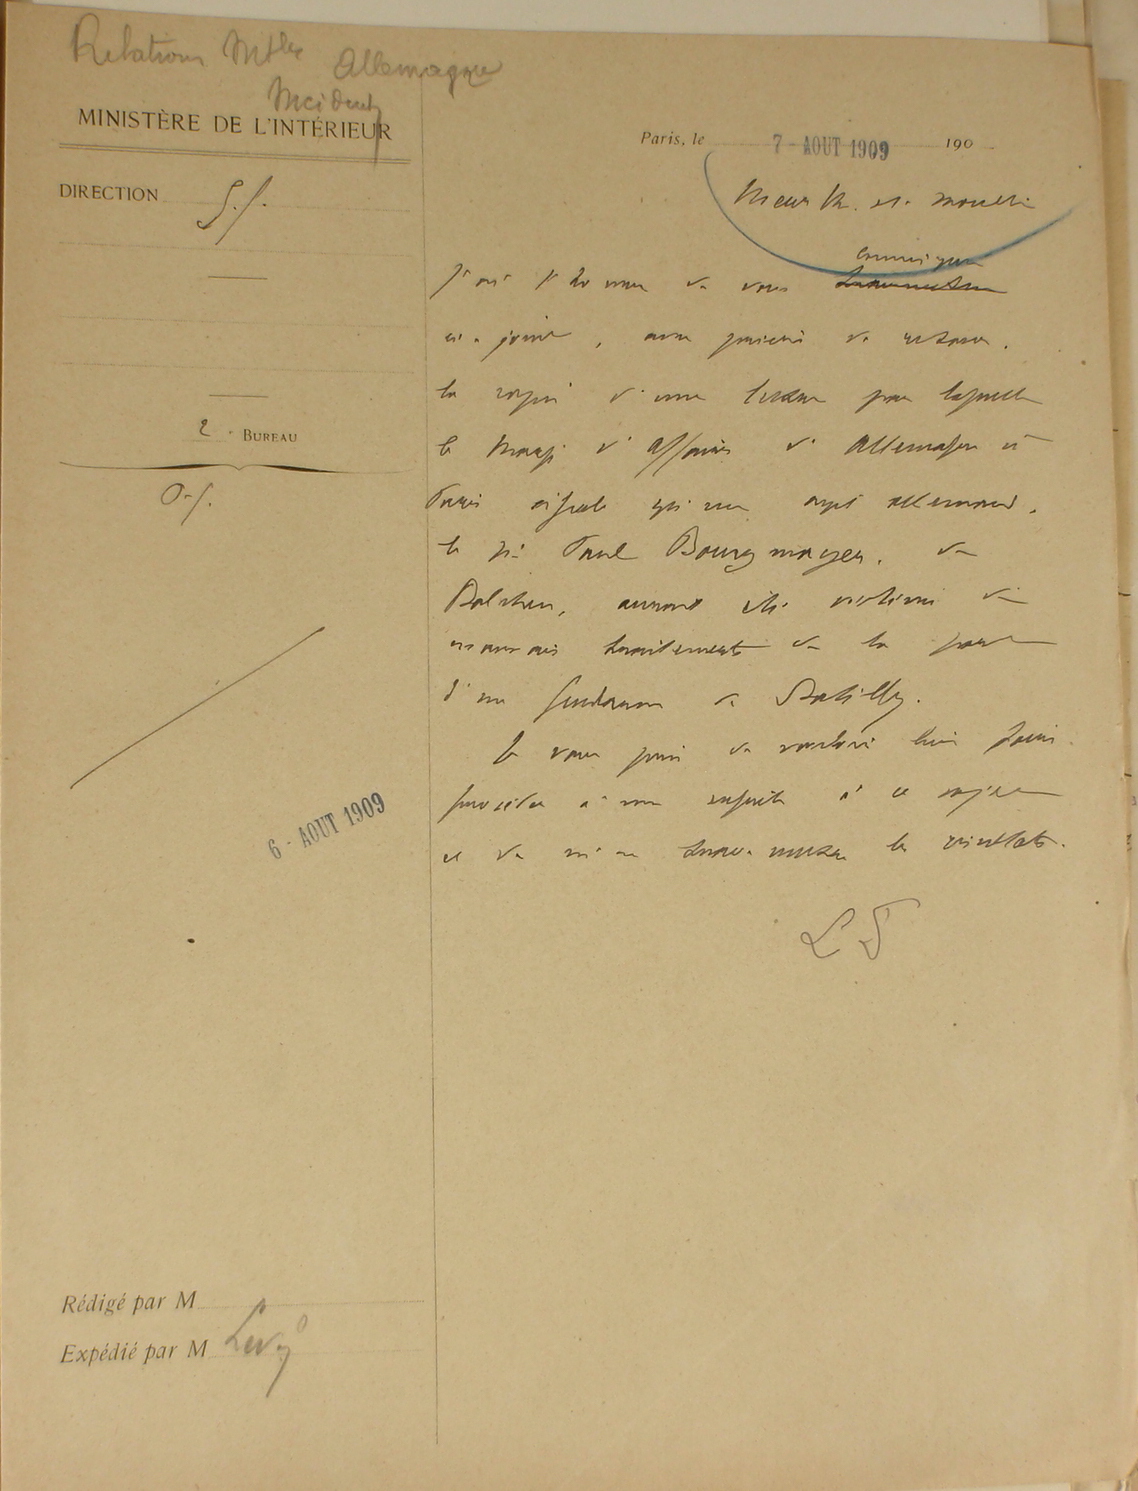 Relations Mtles Allemagne
Incidents
MINISTÈRE DE L'INTÉRIEUR
Paris, le 7 AOUT 1909 190
DIRECTION S.g.
Meurthe et Moselle
communiquer
J'ai l'honneur de vous transmettre
ci-joint, avec prière de retour,
la copie d'une lettre par laquelle
le chargé d'affaires d'Allemagne à
Paris signale qu'un sujet allemand,
2 BUREAU
le né Paul Bourgmayer, de
aurait été victime de
mauvais traitements de la part
d'un gendarme de Batilly.
Je vous prie de vouloir bien faire
procéder à une enquête à ce sujet
6 - AOUT 1909
et de m'en transmettre les résultats.
Rédigé par M
Expédié par M Levy